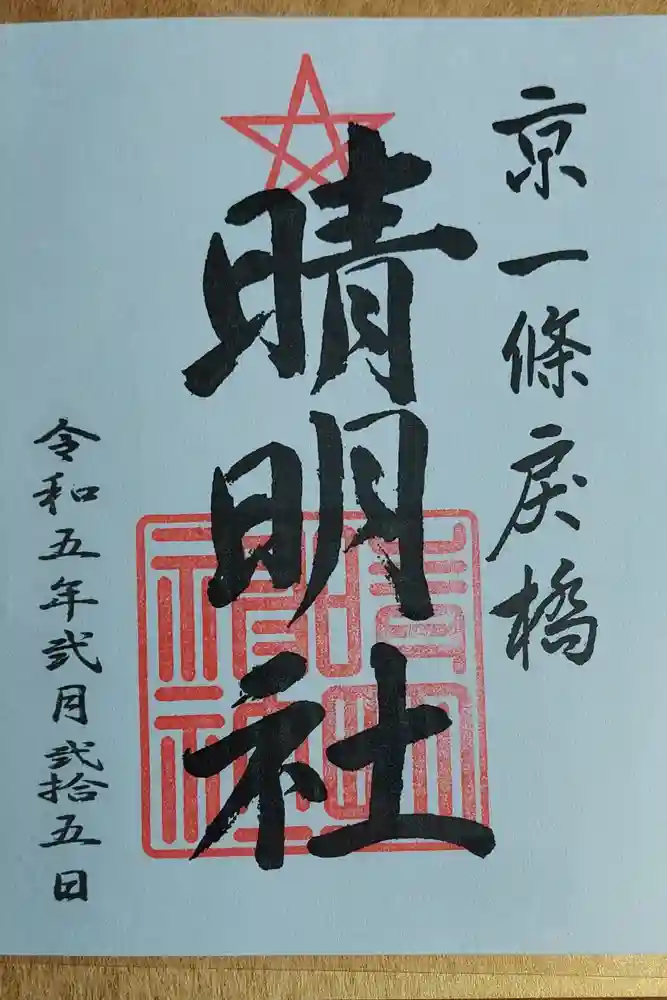 京一條戻橋
晴明社
晴明
神社
令和五年弐月弐拾五日